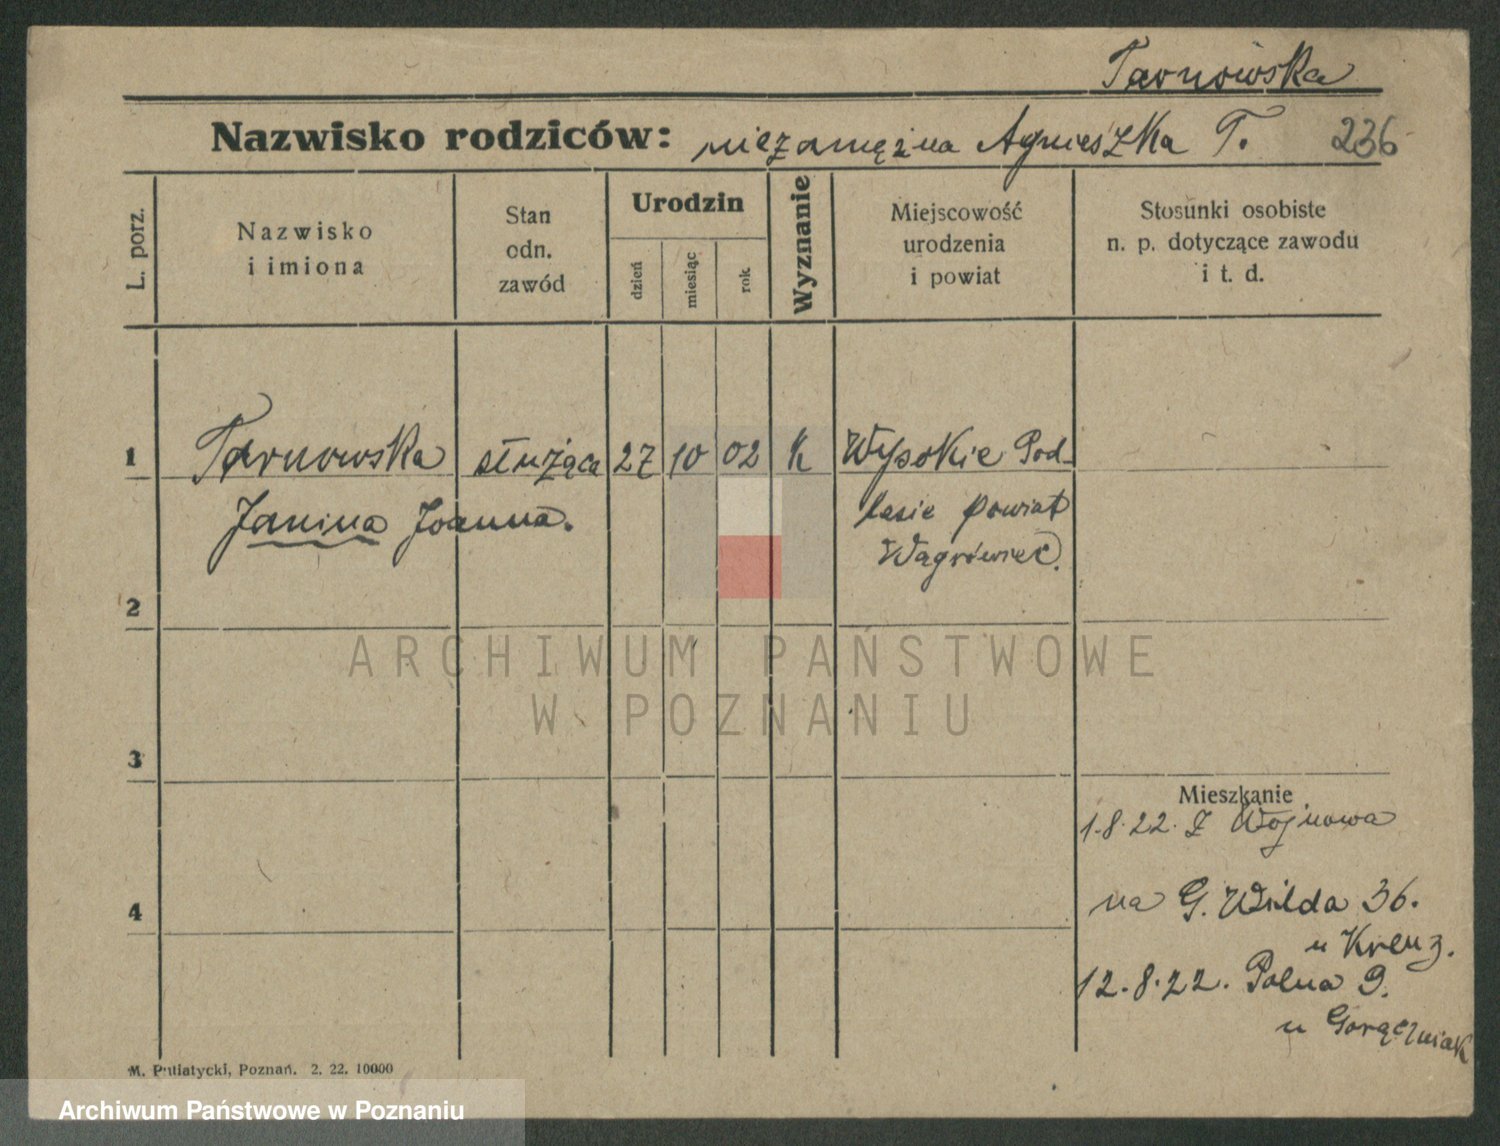 Tarnowska
Nazwisko rodziców: niezamężna Agnieszka T. 236
L. porz.
Nazwisko
i imiona
Stan
odn.
zawód
Urodzin
dzień
miesiąc
rok
Wyznanie
Miejscowość
urodzenia
i powiat
Stosunki osobiste
n. p. dotyczące zawodu
i t. d.
1 Tarnowska służąca 27 10 02 K Wysokie Pod-
Janina Joanna. lasie powiat
Wągrówiec.
2
ARCHIWUM PAŃSTWOWE
W POZNANIU
3
Mieszkanie
1.8.22. Z Wojnowa
4
na G. Wilda 36.
u Kreuz.
12.8.22. Polna 9.
u Gorączniak
M. Putiatycki, Poznań. 2. 22. 10000
Archiwum Państwowe w Poznaniu